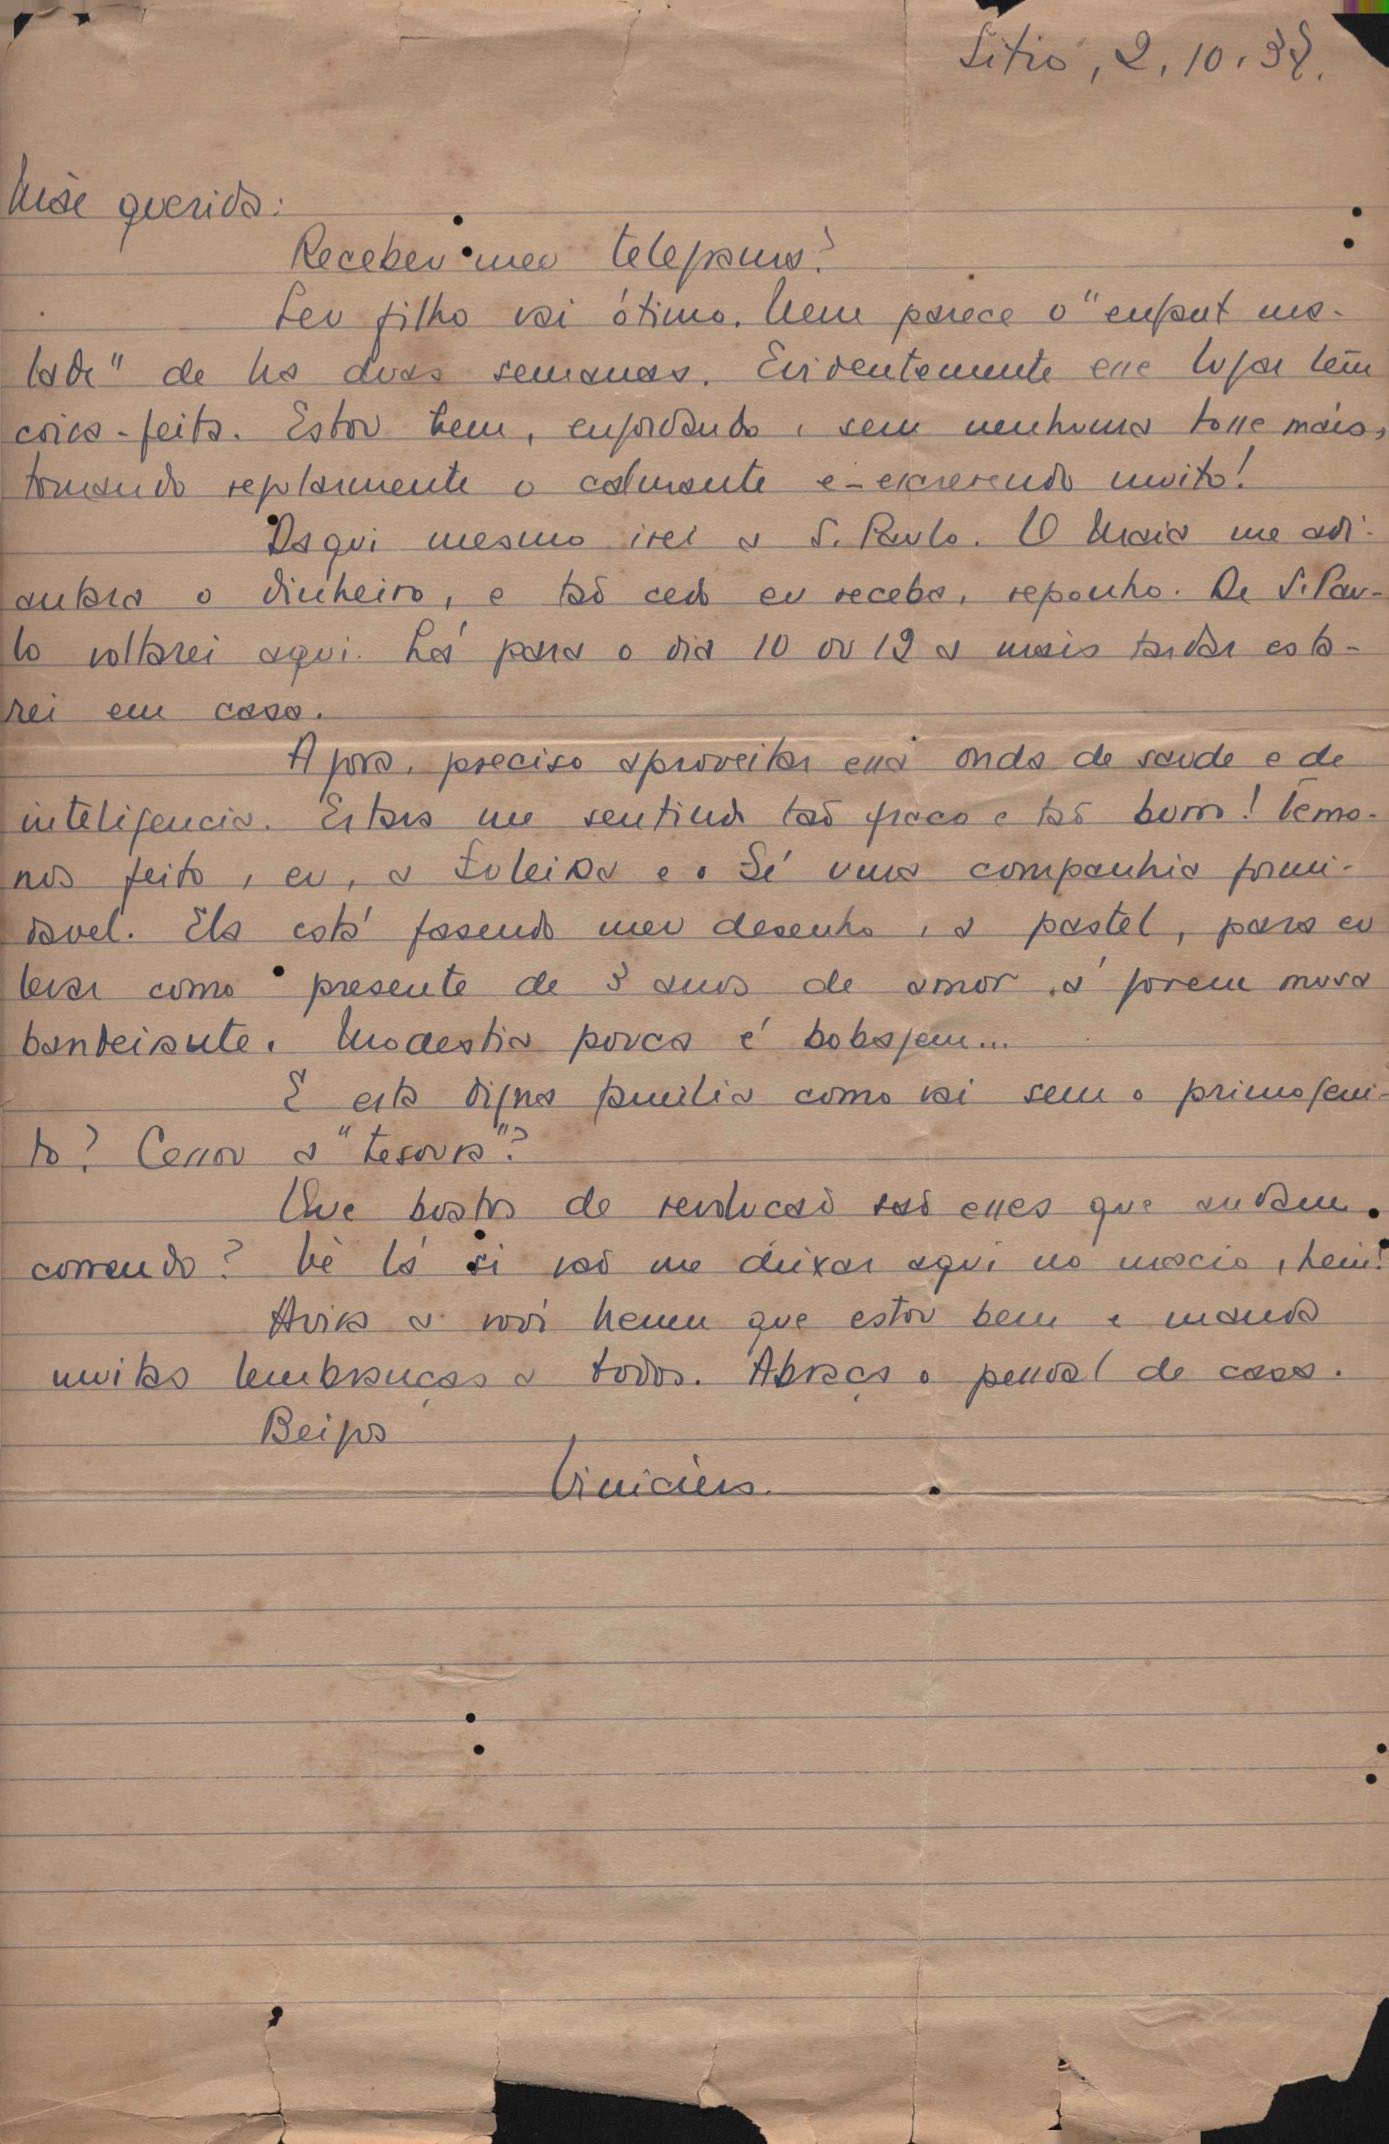 Sitio, 2.10.37.
Mãe querida:
Recebeu meu telegrama?
Seu filho vai ótimo. Nem parece o "enfant ma-
lade" de ha duas semanas. Evidentemente esse lugar tem
coisa-feita. Estou bem, engordando, sem nenhuma tosse máis,
tomando regularmente o calmante e - escrevendo muito!
Daqui mesmo irei a S. Paulo. O Maia me adi-
antara o dinheiro, e tão cedo eu receba, reponho. De S. Pau-
lo voltarei aqui. Lá para o dia 10 ou 12 a mais tardar esta-
rei em casa.
Agora, preciso aproveitar essa onda de saude e de
inteligencia. Estava me sentindo tão fraco e tão burro! Temo-
nos feito, eu, a Zuleika e o Zé uma companhia formi-
davel. Ela está fasendo meu desenho, a pastel, para eu
levar como presente de 3 anos de amor á jovem musa
bandeirante. Modestia pouca é bobagem...
E esta digna familia como vai sem o primogeni-
to? Cessou a "tesoura"?
Que boatos de revolucão são esses que andam
correndo? Vê lá si vão me deixar aqui no macio, hein!
Avisa a vovó Nenen que estou bem e manda
muitas lembranças a todos. Abraça o pessoal de casa.
Beijos
Vinicius.